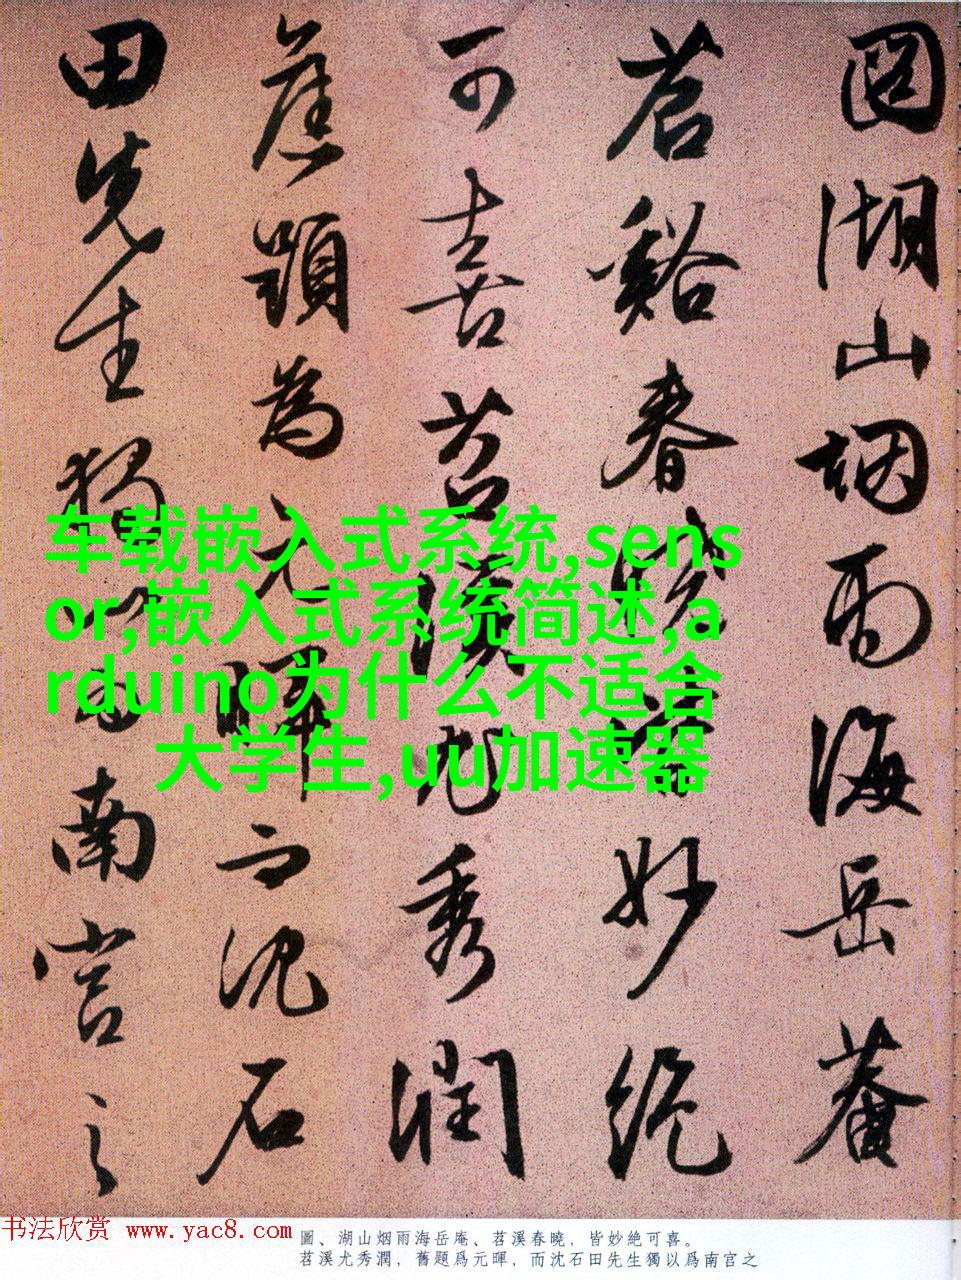 圖湖山烟雨海岳菴
苕谿春曉皆妙絕
可喜苕溪尤秀潤
舊題為元暉而沈石
田先生獨以為南宮之
车载嵌入式系统,sens
or,嵌入式系统简述,a
rduino为什么不适合
大学生,uu加速器
书法欣赏 www.yac8.com
圖、湖山烟雨海岳庵、苕溪春曉，皆妙絶可喜。
苕溪尤秀潤，舊題爲元暉，而沈石田先生獨以爲南宫之